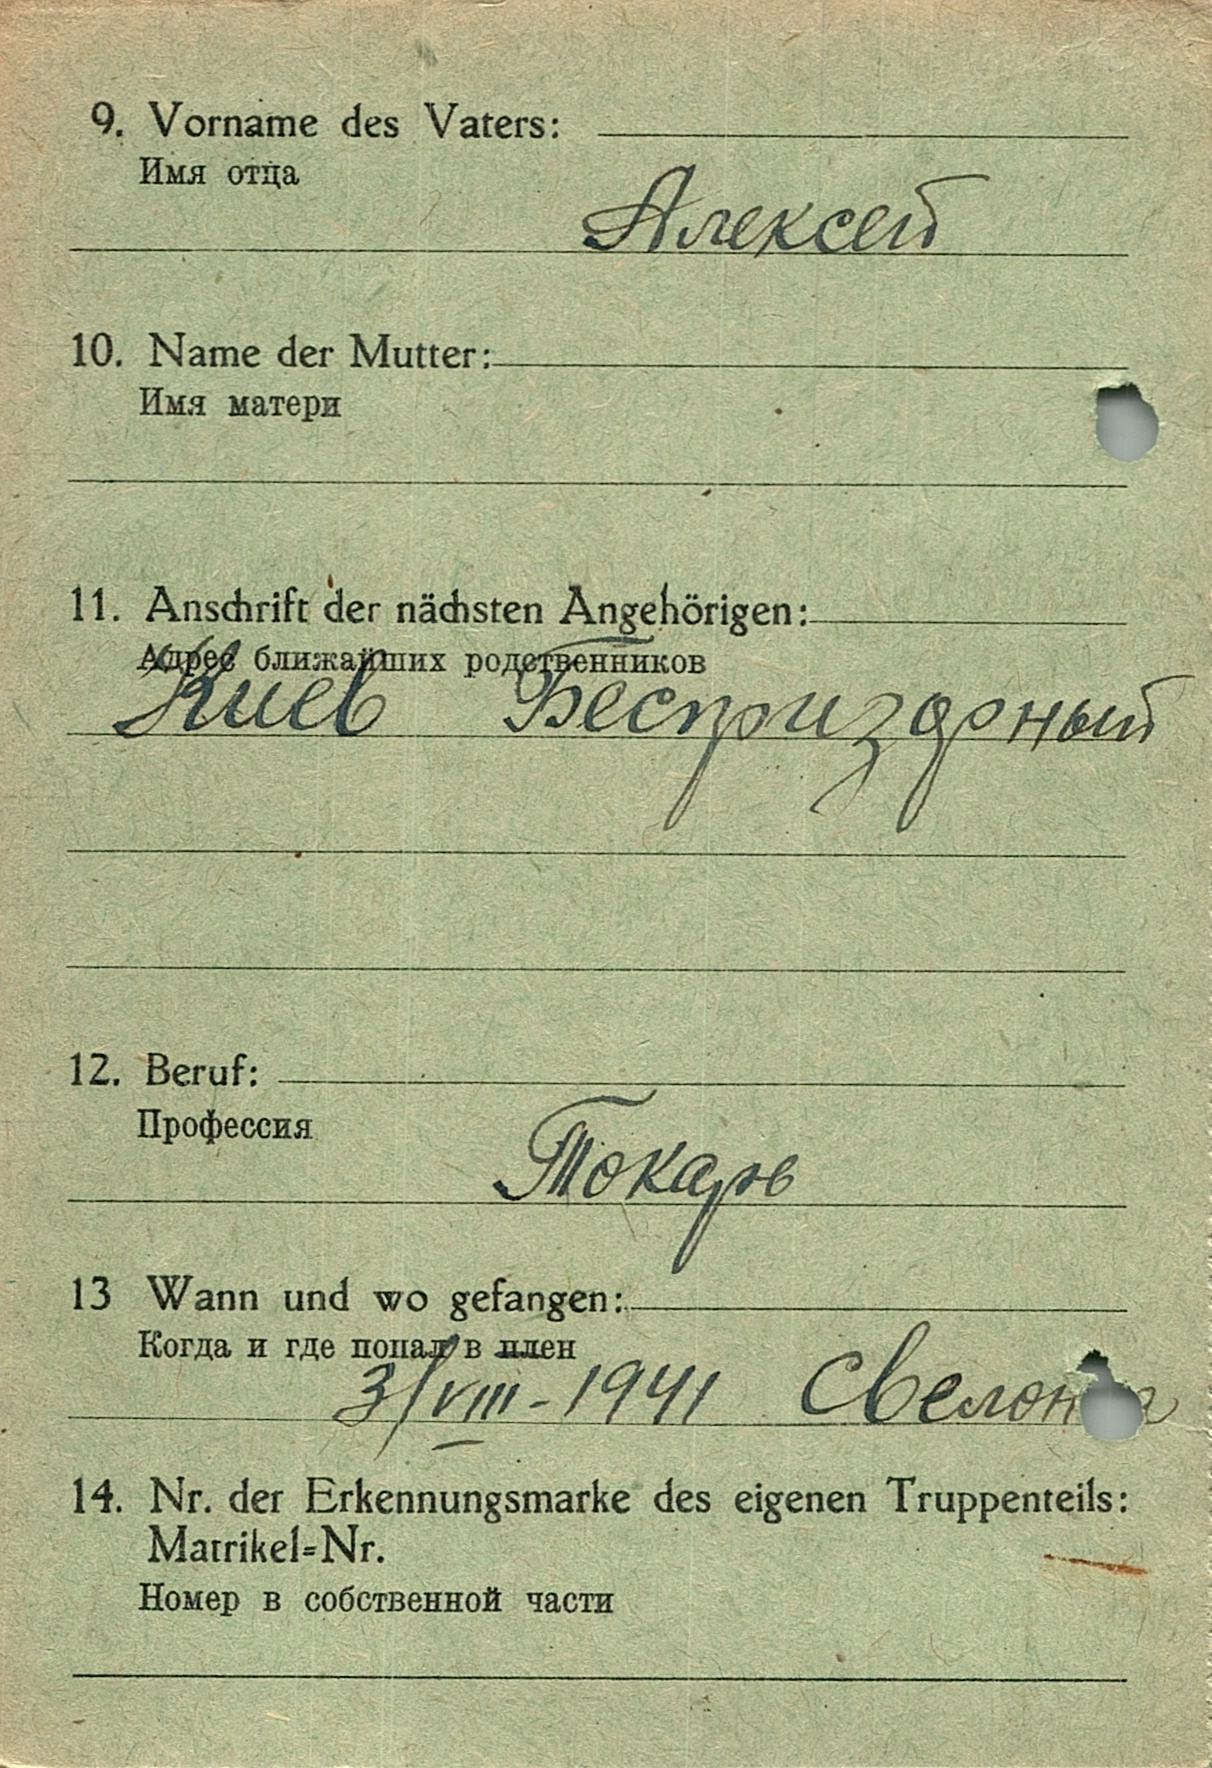 9. Vorname des Vaters:
Имя отца
Алексей
10. Name der Mutter:
Имя матери
11. Anschrift der nächsten Angehörigen:
Адрес ближайших родственников
Киев Бесприздрный
12. Beruf:
Профессия
Токарь
13 Wann und wo gefangen:
Когда и где попал в плен
3/VIII-1941
14. Nr. der Erkennungsmarke des eigenen Truppenteils:
Matrikel=Nr.
Номер в собственной части